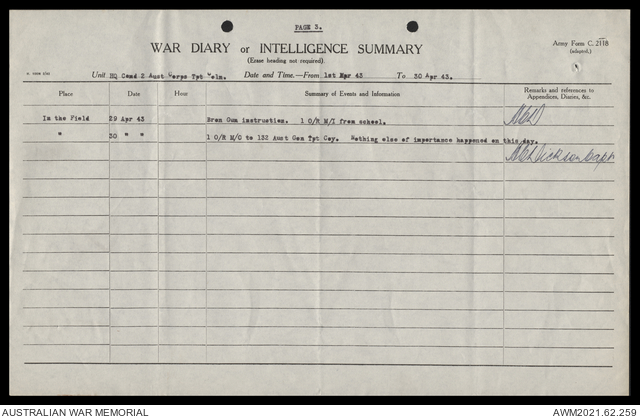 PAGE 3.
WAR DIARY or INTELLIGENCE SUMMARY
(Erase heading not required).
Army Form C. 2118
(adapted.)
Unit HQ Comd 2 Aust Corps Tpt Coln. Date and Time.—From 1st Apr 43 To 30 Apr 43.
Place Date Hour Summary of Events and Information Remarks and references to Appendices, Diaries, &c.
In the Field 29 Apr 43 Bren Gun instruction. 1 O/R M/I from school.
" 30 " " 1 O/R M/O to 132 Aust Gen Tpt Coy. Nothing else of importance happened on this day.
Dickson Capt
AUSTRALIAN WAR MEMORIAL AWM2021.62.259